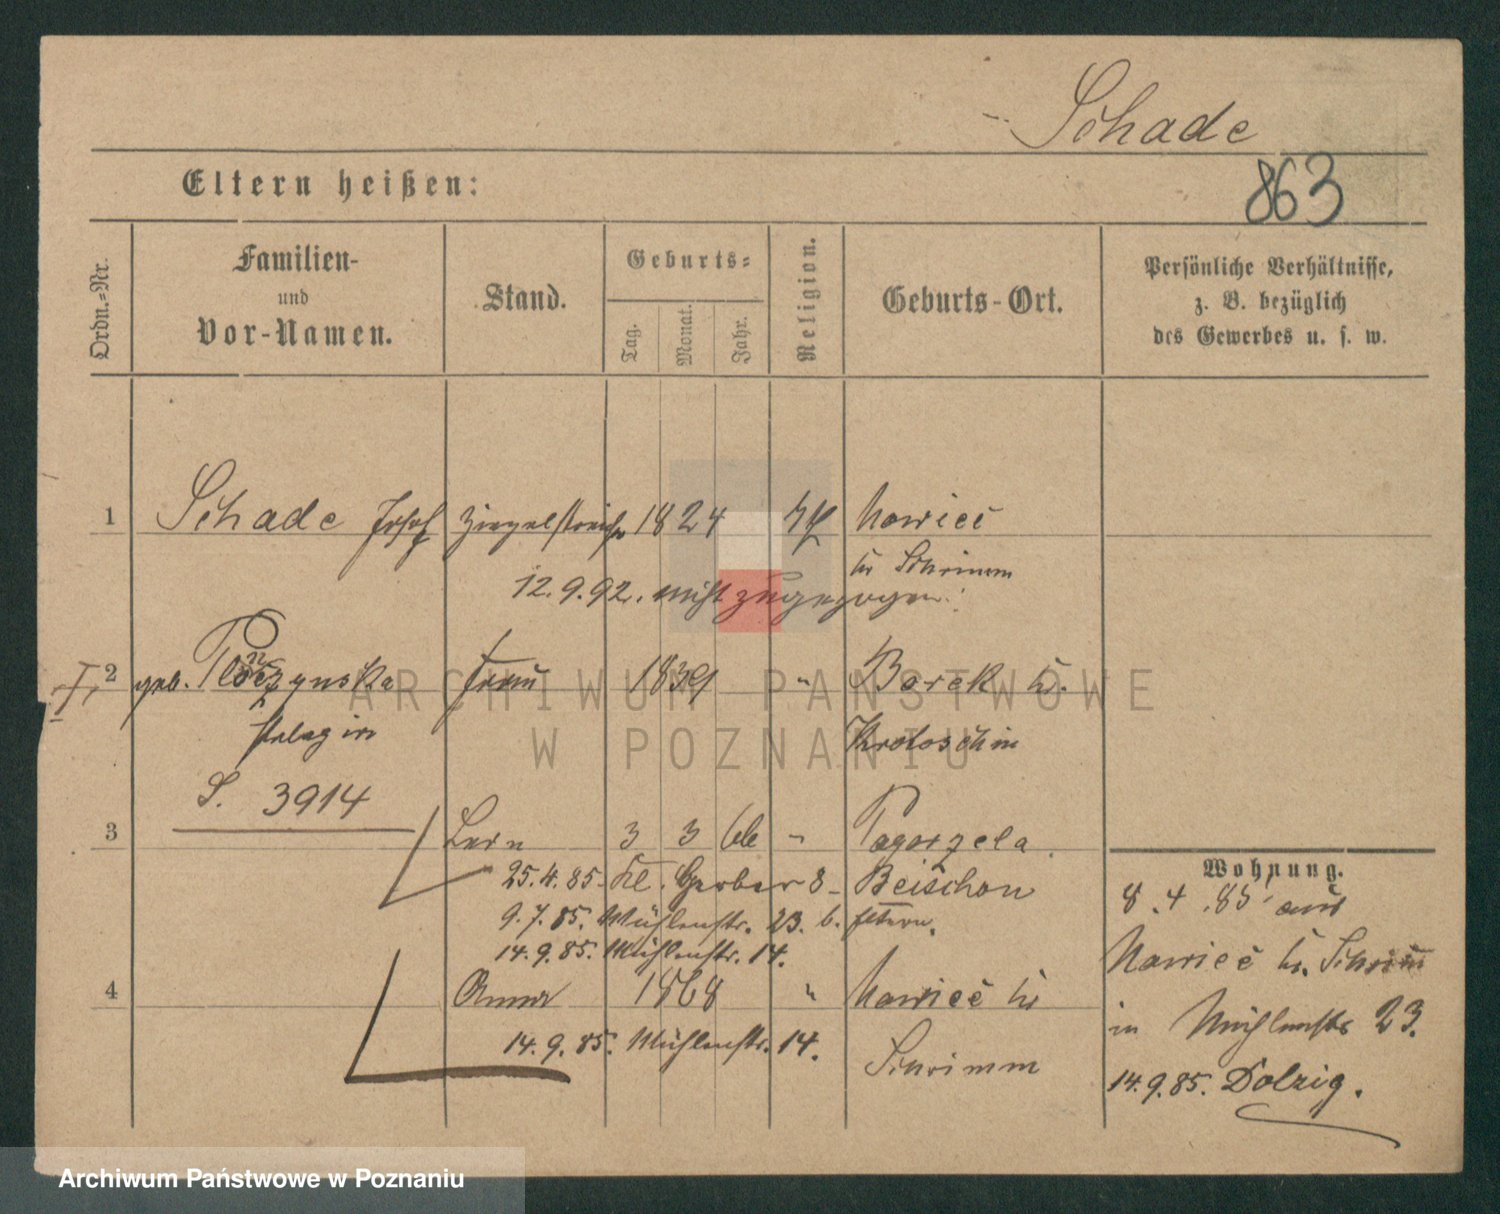 Schade
863
Eltern heißen:
Ordn.=Nr.
Familien-
und
Vor-Namen.
Stand.
Geburts=
Tag.
Monat.
Jahr.
Religion.
Geburts-Ort.
Persönliche Verhältnisse,
z. B. bezüglich
des Gewerbes u. s. w.
1 Schade Josef Ziegelstreicher 1824 Nowiec
br Schrimm
12.9.92. nicht zugezogen.
2 geb. Frau 1839 " Borek br.
Pelagia Krotoschin
S. 3914
3 3 3 " Pogorzela
25.4.85. Kl. Gerber 8 -
9.7.85. Mühlenstr. 23. b. Eltern.
14.9.85. Mühlenstr. 14.
4 Anna 1868 " Nowiec br
14.9.85. Mühlenstr. 14. Schrimm
Wohnung.
8.4.85 aus
Nowiec b. Schrimm
in Mühlenstr 23.
14.9.85. Dolzig.
ARCHIWUM PAŃSTWOWE
W POZNANIU
Archiwum Państwowe w Poznaniu